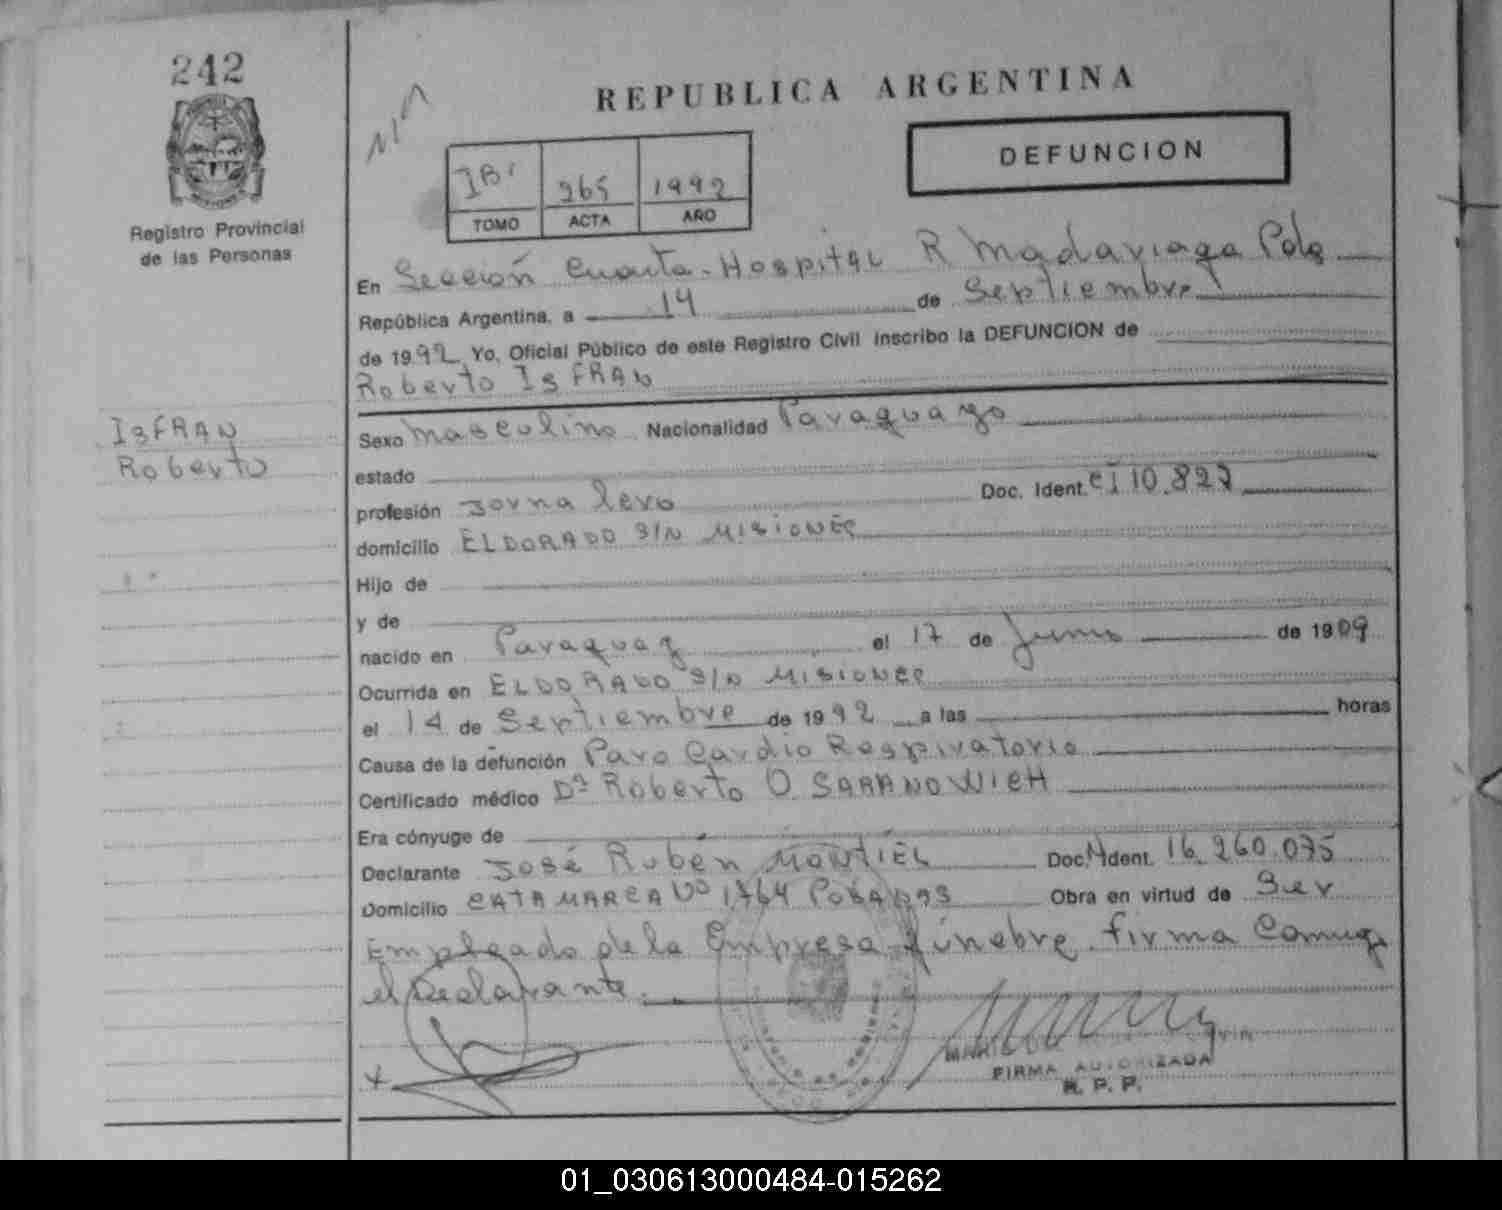 242
REPUBLICA ARGENTINA
DEFUNCION
265 1992
TOMO ACTA AÑO
Registro Provincial
de las Personas
En Sección Cuarta - Hospital R Madariaga Pdas
República Argentina, a 14 de Septiembre
de 1992 Yo, Oficial Público de este Registro Civil inscribo la DEFUNCION de
Roberto IsFRAN
IsFRAN
Roberto
Sexo masculino Nacionalidad Paraguayo
estado
profesión Jornalero Doc. Ident. CI 10.827
domicilio ELDORADO S/N MISIONES
Hijo de
y de
nacido en Paraguay el 17 de Junio de 1909
Ocurrida en ELDORADO S/N MISIONES
el 14 de Septiembre de 1992 a las horas
Causa de la defunción Paro Cardio Respiratorio
Certificado médico Dr Roberto O SARANOWICH
Era cónyuge de
Declarante José Rubén MONTIEL Doc. Ident. 16.260.075
Domicilio CATAMARCA Nº 1764 POSADAS Obra en virtud de Ser
Empleado de la Empresa fúnebre firma Conmigo
el Declarante.
FIRMA AUTORIZADA
R. P. P.
01_030613000484-015262